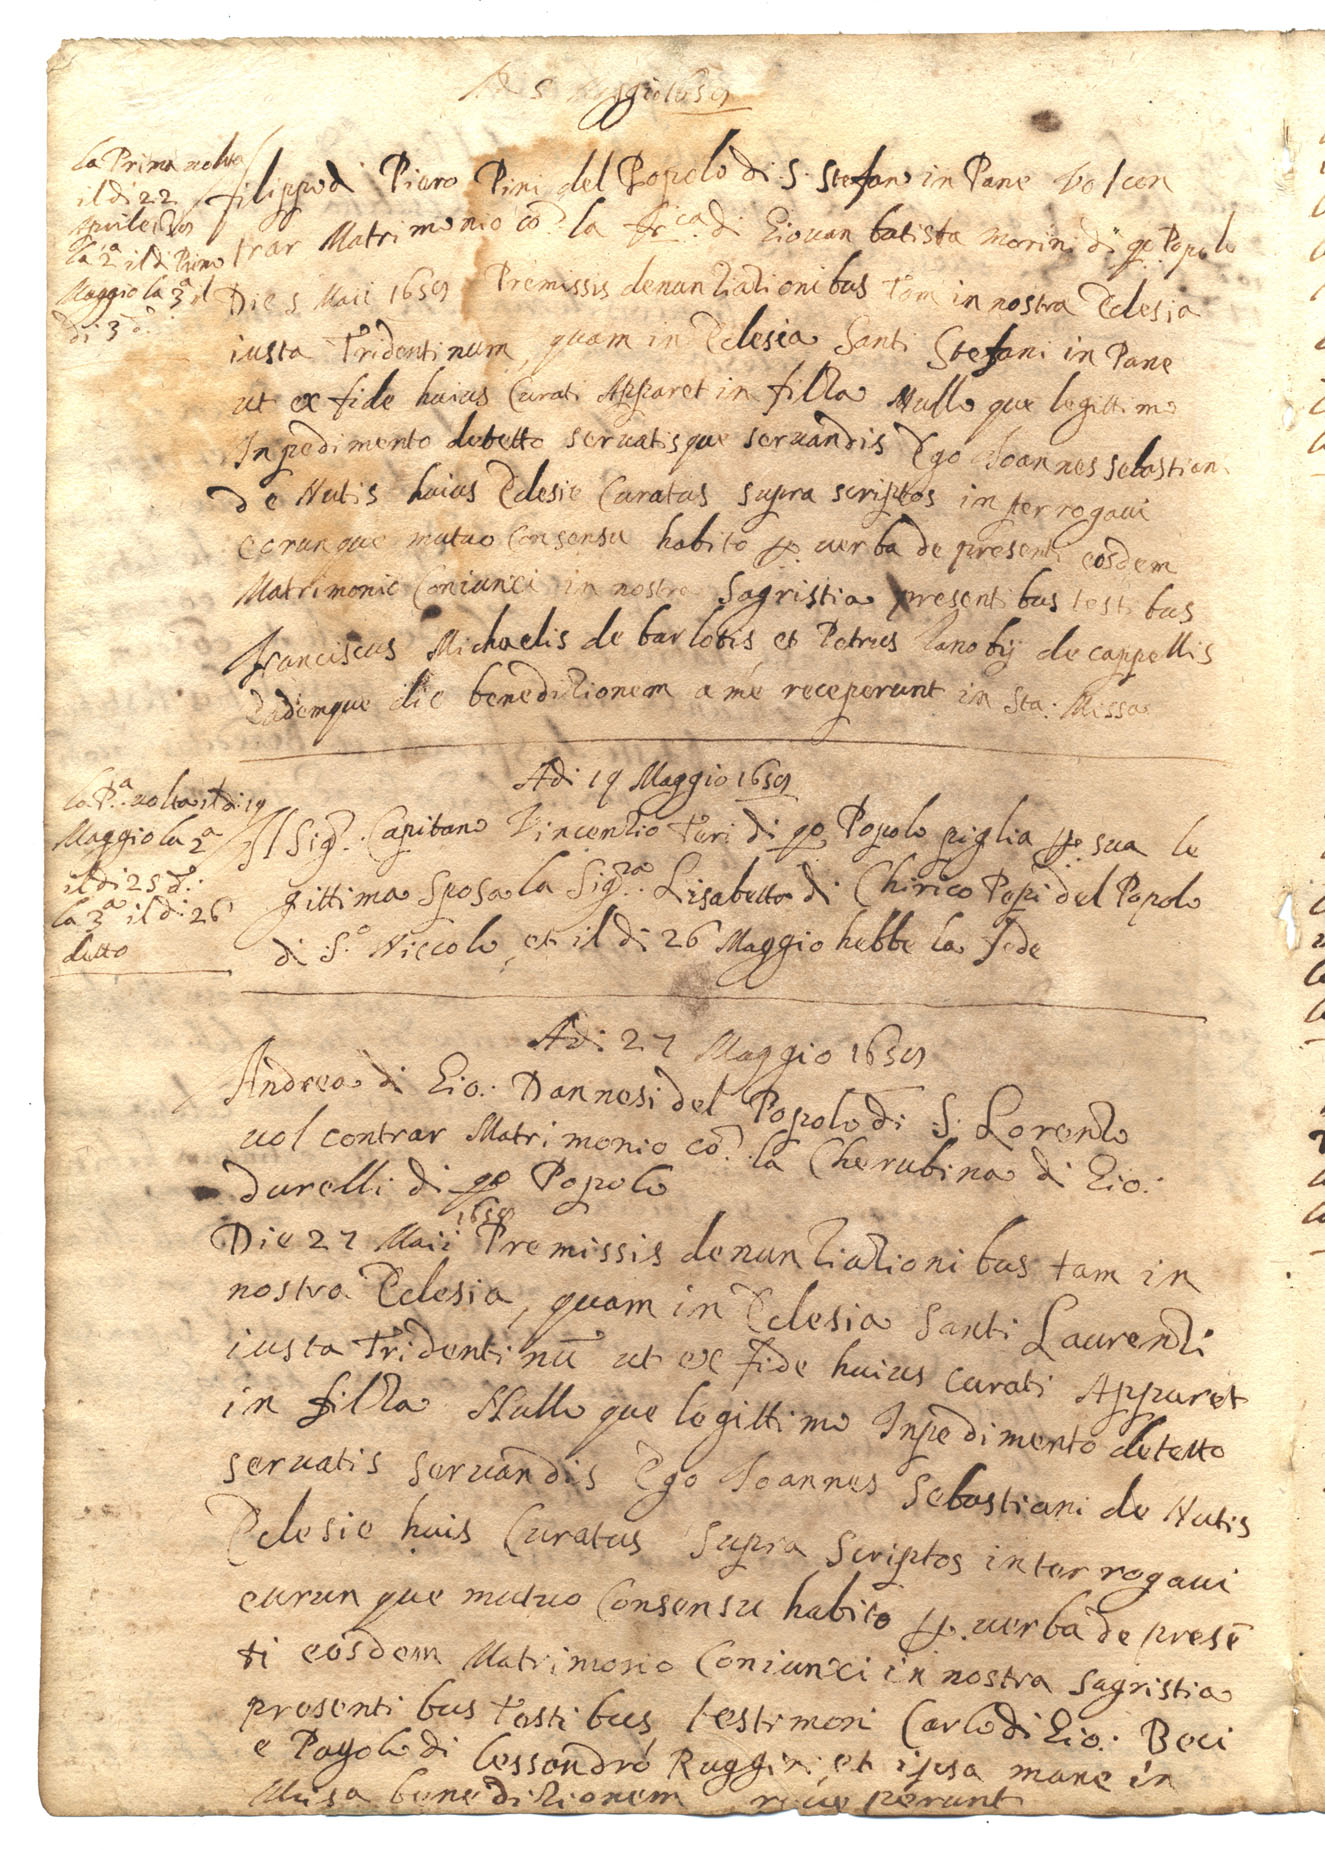 A di 5 Maggio 1659
la Prima uolta
il di 22
Aprile 1659
la 2.ª il di Primo
Maggio la 3.ª il
di 3 d.º
Filippo di Piero Pini del Popolo di S. Stefano in Pane vol con
trar Matrimonio cō. la Fr.ca di Giouan batista Morini di qo Popolo
Die 5 Maii 1659 Premissis denuntiationibus tam in nostra Eclesia
iusta Tridentinum, quam in Eclesia Santi Stefani in Pane
ut ex fide huius Curati Apparet in filza Nullo que legittimo
Inpedimento detetto seruatisque seruandis Ego Joannes sebastian
de Nutis huius Eclesie Curatus supra scriptos interrogaui
eorunque mutuo Consensu habito p. uerba de presenti eosdem
Matrimonio Coniunxi in nostra Sagristia presentibus testibus
Franciscus Michaelis de barlotis et Petrus Zanobij de cappellis
Eademque die beneditionem a me receperunt in Sta: Messa
Adi 19 Maggio 1659
la P.ª uolta il di 19
Maggio la 2ª
il di 25 d.º
la 3.ª il di 26
detto
Il Sig.r Capitano Vincentio Turi di qo Popolo piglia p. sua le
gittima Sposa la Sig.ra Lisabetta di Chirico Pepi del Popolo
di S.º Niccolo, et il di 26 Maggio hebbe la fede
Adi 27 Maggio 1659
Andrea di Gio: Dannesi del Popolo di S. Lorenzo
uol contrar Matrimonio cō. la Cherubina di Gio:
durelli di qo Popolo
Die 27 Maii 1659 Premissis denuntiationibus tam in
nostra Eclesia, quam in Eclesia Santi Laurenti
iusta Tridentinū ut ex fide huius curati Apparet
in filza Nullo que legittimo Inpedimento detetto
seruatis seruandis Ego Joannes Sebastiani de Nutis
Eclesie huis Curatus Supra Scriptos interrogaui
eurunque mutuo Consensu habito p. uerba de presē
ti eosdem Matrimonio Coniunxi in nostra Sagristia
presentibus testibus testimoni Carlo di Gio: Beci
e Pagolo di lessandro Ruggini et ipsa mane in
Misa beneditionem riceperunt